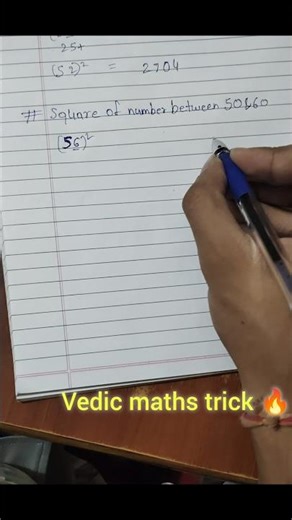 25+
(52)² = 2704
# Square of number between 50&60
(56)²
Vedic maths trick 🔥